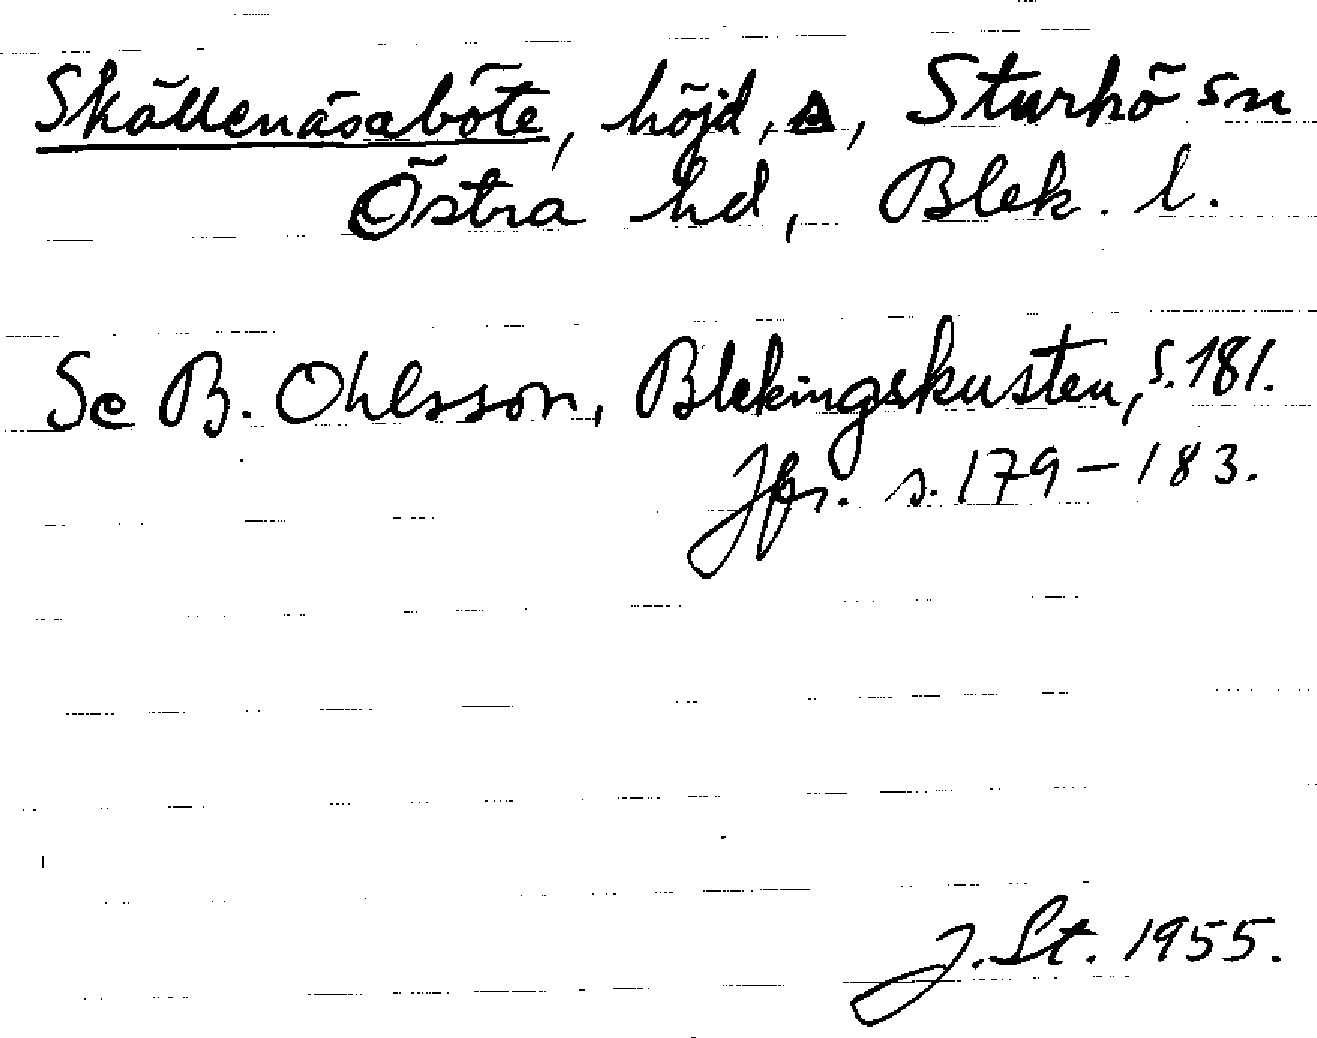 Skällenäsaböte, höjd, △, Sturkö sn
Östra hd, Blek. l.
Se B. Ohlsson, Blekingskusten, s. 181.
Jfr. s. 179–183.
J. St. 1955.